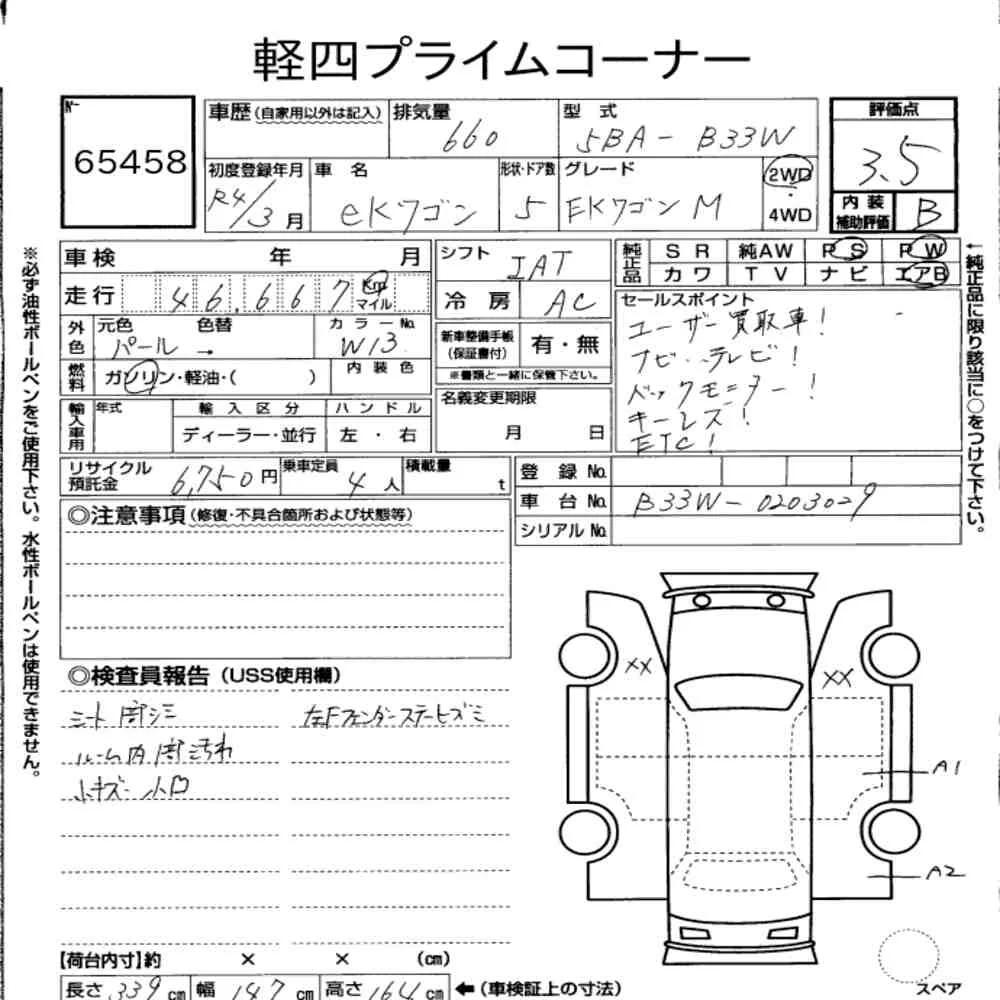 軽四プライムコーナー
No.
65458
車歴(自家用以外は記入) 排気量 660 型式 5BA-B33W
評価点 3.5
初度登録年月 R4/3月 車名 eKワゴン 形状・ドア数 5 グレード EKワゴン M 2WD 4WD
内装補助評価 B
車検 年 月 シフト IAT 純正品 SR 純AW PS PW
走行 46,667 km マイル 冷房 AC カワ TV ナビ エアB
外色 元色 パール 色替 → カラーNo. W13
新車整備手帳(保証書付) 有・無
※書類と一緒に保管下さい。
セールスポイント
ユーザー買取車!
ナビ・テレビ!
バックモニター!
キーレス!
ETC!
燃料 ガソリン・軽油・( ) 内装色
名義変更期限 月 日
輸入車用 年式 輸入区分 ハンドル
ディーラー・並行 左・右
リサイクル預託金 6,750円 乗車定員 4人 積載量 t
登録No.
車台No. B33W-0203029
シリアルNo.
◎注意事項(修復・不具合箇所および状態等)
◎検査員報告(USS使用欄)
シート間シミ
左Fフェンダーステーヒズミ
ルーム内間汚れ
小キズ 小凹
XX
XX
A1
A2
スペア
【荷台内寸】約 × × (cm)
長さ 339cm 幅 147cm 高さ 164cm ←(車検証上の寸法)
※必ず油性ボールペンをご使用下さい。水性ボールペンは使用できません。
←純正品に限り該当に○をつけて下さい。